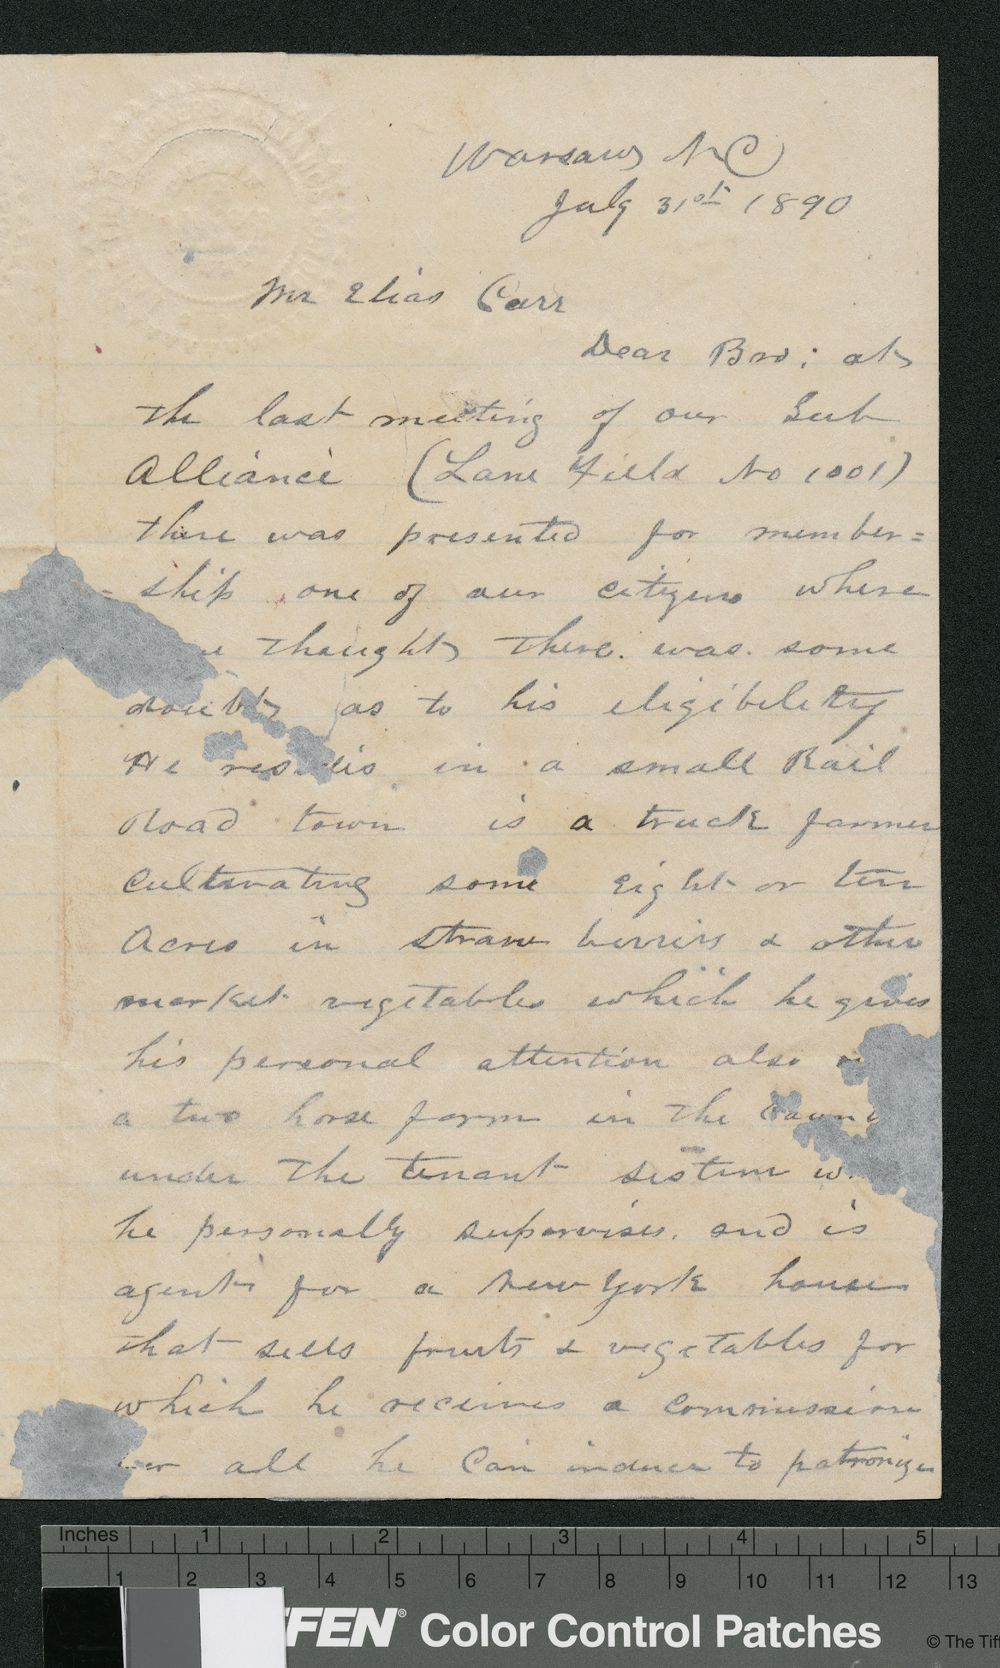 Warsaw N C
July 31st 1890
Mr Elias Carr
Dear Bro: at
the last meeting of our Sub
Alliance (Lane Field No 1001)
there was presented for member=
ship one of our citizens where
thought there was some
doubt as to his eligibility
He resides in a small Rail
Road town is a truck farmer
Cultivating some eight or ten
Acres in straw berries & other
market vegetables which he gives
his personal attention also
a two horse farm in the
under the tenant sistem
he personally supervises. and is
agent for a New York house
that sells fruits & vegetables for
which he receives a commission
all he can induce to patronize
Inches 1 2 3 4 5
1 2 3 4 5 6 7 8 9 10 11 12 13
FFEN® Color Control Patches © The Tiff